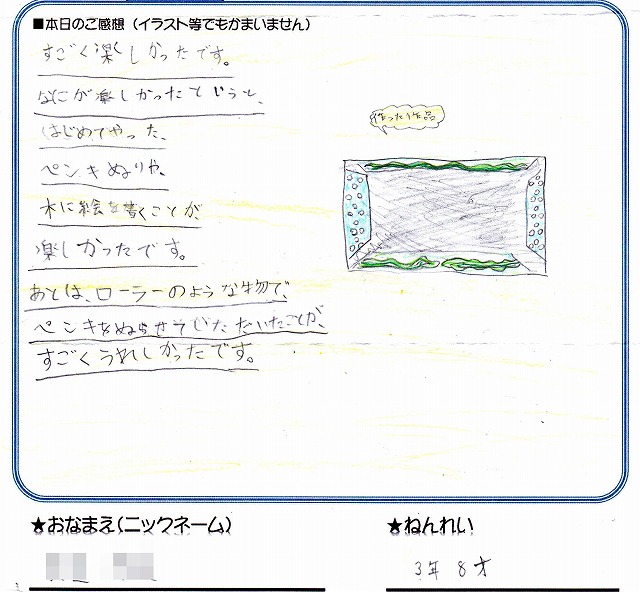 ■本日のご感想（イラスト等でもかまいません）
すごく楽しかったです。
なにが楽しかったというと、
はじめてやった、
ペンキぬりや、
木に絵を書くことが
楽しかったです。
あとは、ローラーのような物で、
ペンキをぬらせていただいたことが、
すごくうれしかったです。
作った作品
★おなまえ（ニックネーム）
★ねんれい
3年 8才